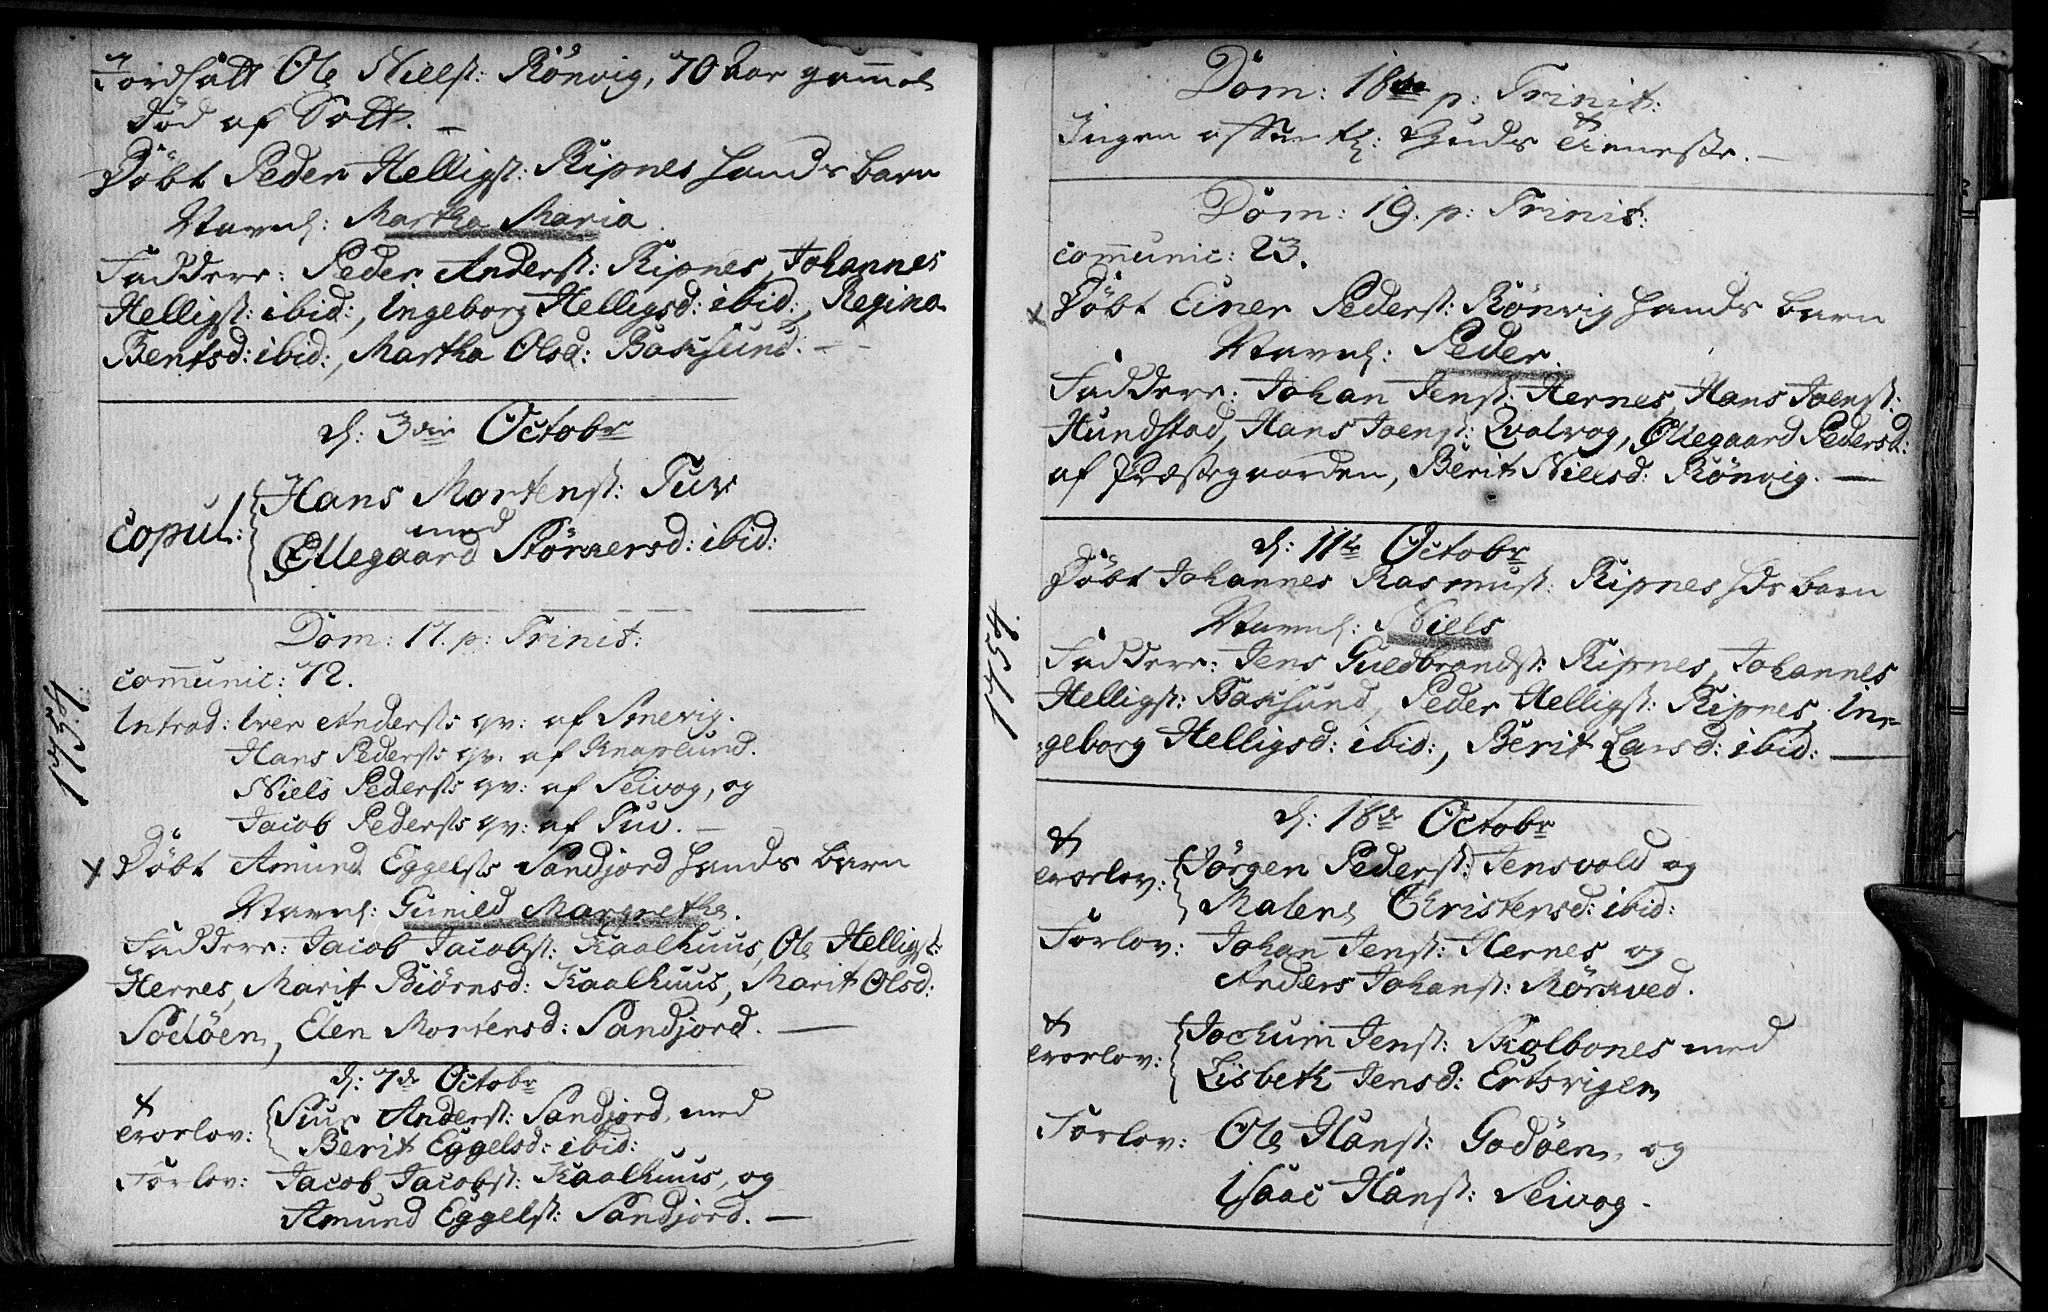 Jordsatt Ole Nielss: Rönvig, 70 Aar gammel
död af Sott. –
Döbt Peder Helligs: Ripnes hands barn
Navnl: Martha Maria.
Faddere: Peder Anders: Ripnes, Johannes
Helligs: ibid:, Ingeborg Helligsd: ibid:, Regina
Bentsd: ibid:, Martha Olsd: Baksund. –
d: 3die Octobr
copul: Hans Mortens: Tuv
med
Ellegaard Störkersd: ibid:
Dom: 17. p: Trinit:
communic: 72.
Introd: Iver Anderss qv: af Smevig.
Hans Pederss qv: af Knaplund.
Niels Pederss qv: af Seivog, og
Jacob Pederss qv: af Tuv. –
1754.
x Döbt Amund Eggelss Sandjord hands barn
Navnl: Gunild Margrethe.
Faddere: Jacob Jacobs: Kaalhuus, Ole Helligs:
Hernes, Marit Biörnsd: Kaalhuus, Marit Olsd:
Godöen, Elen Mortensd: Sandjord. –
d: 7de Octobr
Trorlov: Siur Anders: Sandjord, med
Berit Eggelsd: ibid:
Forlov: Jacob Jacobs: Kaalhuus, og
Amund Eggels: Sandjord. –
Dom: 18de p: Trinit:
Ingen offentl: Guds Tieneste. –
Dom: 19. p: Trinit:
communic: 23.
x Döbt Einer Peders: Rönvig hands barn
Navnl: Peder.
Faddere: Johan Jens: Hernes, Hans Joens:
Hundstad, Hans Joens: Qvalvog, Ellegaard Pedersd:
af Præstegaarden, Berit Nielsd: Rönvig. –
d: 11te Octobr
Döbt Johannes Rasmus: Ripnes hds barn
Navnl: Niels
1754.
Faddere: Jens Guldbrands: Ripnes, Johannes
Helligs: Baksund, Peder Helligs: Ripnes, In-
geborg Helligsd: ibid:, Berit Larsd: ibid: –
d: 18de Octobr
Trorlov: Jörgen Peders: Jensvold og
Malene Christensd: ibid:
Forlov: Johan Jens: Hernes og
Anders Johans: Mörkved.
Trorlov: Jochum Jens: Skolbones med
Lisbeth Jensd: Ertsvigen
Forlov: Ole Hans: Godöen, og
Isaac Hans: Seivog.